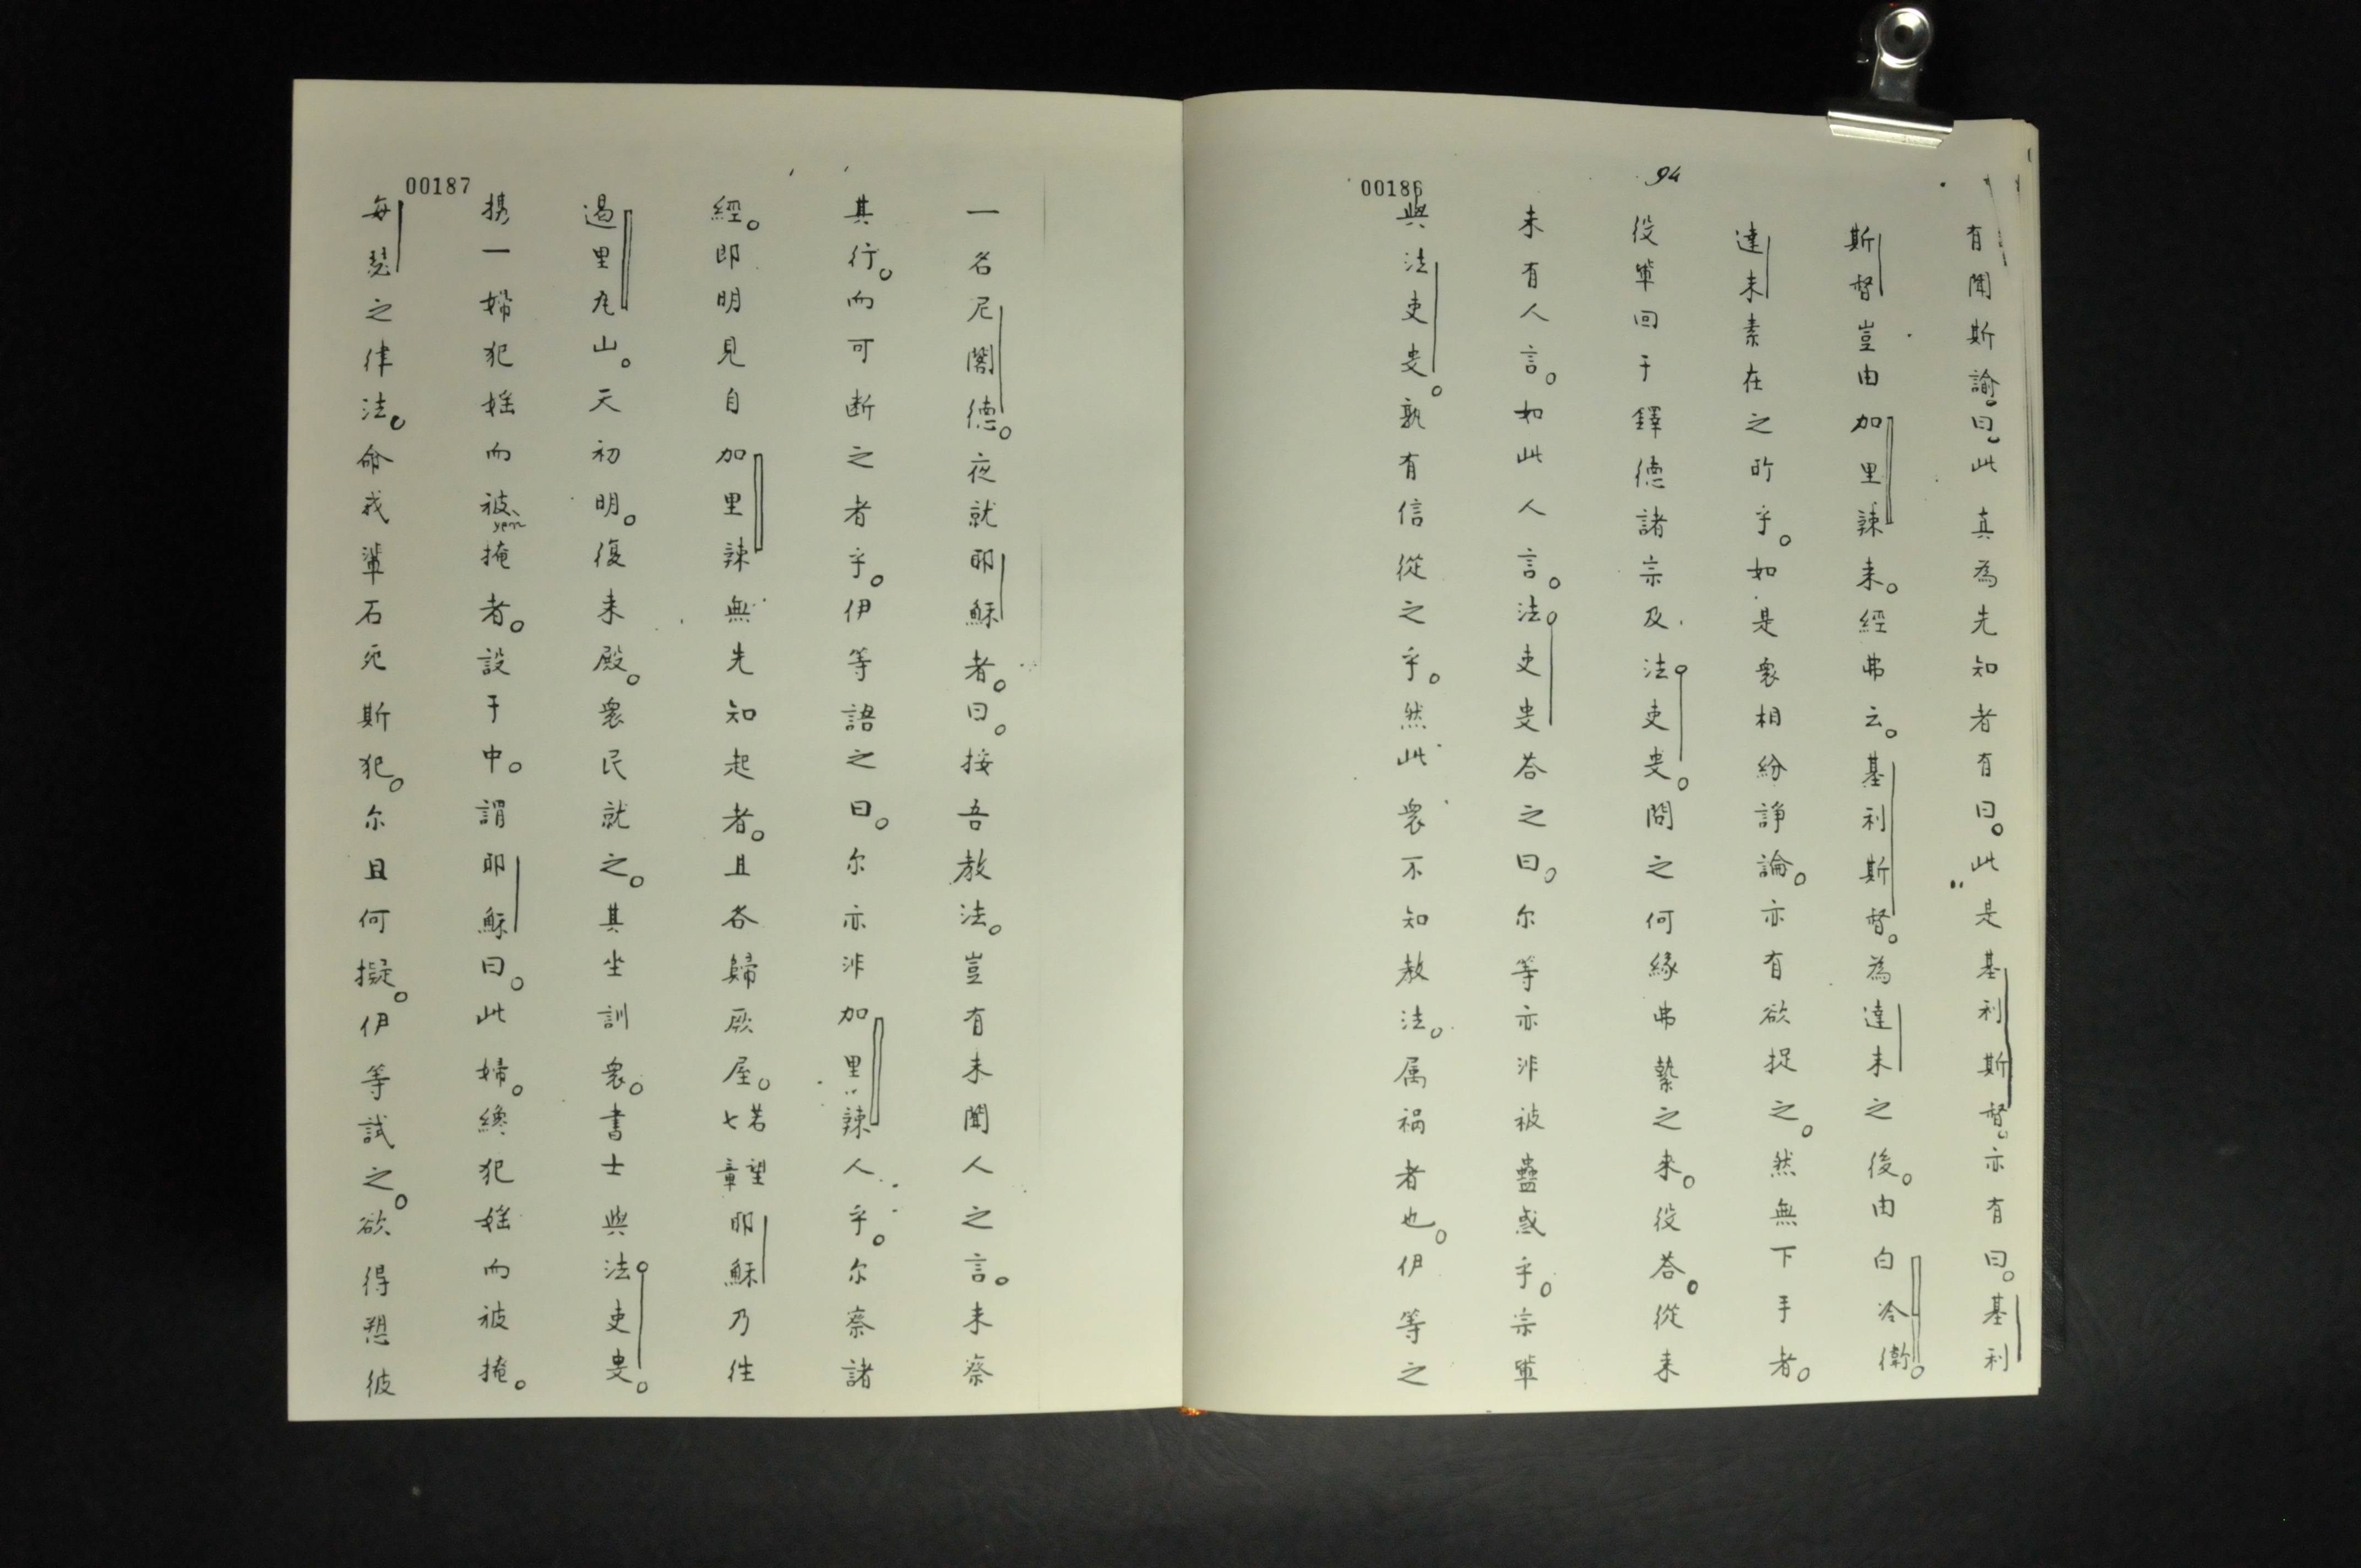 94
00186
有聞斯諭。曰。此真為先知者有曰。此是基利斯督。亦有曰。基利
斯督豈由加里辣来。經弗云。基利斯督。為達未之後。由白冷衛。
達未素在之所乎。如是衆相紛諍論。亦有欲捉之。然無下手者。
役軰回于鐸德諸宗及法吏叟。問之何緣弗縶之来。役答。從来
未有人言。如此人言。法吏叟答之曰。尔等亦非被蠱惑乎。宗軰
與法吏叟。孰有信從之乎。然此衆不知教法。属祸者也。伊等之
00187
一名尼閣德。夜就耶穌者。曰。按吾教法。豈有未聞人之言。未察
其行。而可断之者乎。伊等語之曰。尔亦非加里辣人乎。尔察諸
經。即明見自加里辣無先知起者。且各歸厥屋。若望七章耶穌乃往
遏里瓦山。天初明。復来殿。衆民就之。其坐訓衆。書士與法吏叟。
携一婦犯婬而被掩者。設于中。謂耶穌曰。此婦。纔犯婬而被掩。
yèn
每瑟之律法。命我軰石死斯犯。尔且何擬。伊等試之。欲得愬彼